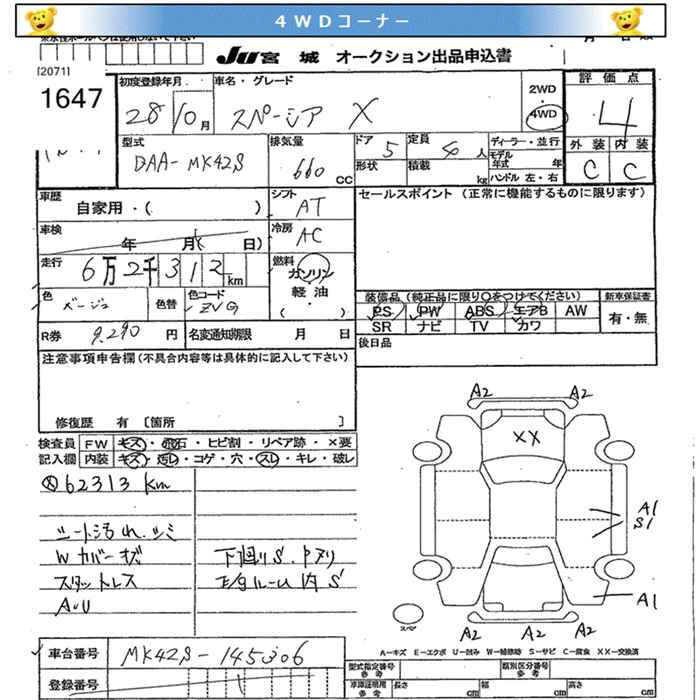 4WDコーナー
[2071]
JU 宮城 オークション出品申込書
1647
初度登録年月 車名・グレード 2WD 評価点
28 10月 スペーシア X 4WD 4
型式 排気量 ドア 定員 ディーラー・並行 外装 内装
DAA-MK42S 660 CC 5 4人 モデル年式 年 C C
形状 積載 kg ハンドル 左・右
車歴 シフト セールスポイント (正常に機能するものに限ります)
自家用・( ) AT
車検 年 月( 日) 冷房 AC
走行 6万2千312km 燃料 ガソリン
軽油
・( )
色 ベージュ 色替 色コード ZVG
装備品 (純正品に限り○をつけてください) 新車保証書
PS PW ABS エアB AW 有・無
SR ナビ TV カワ
R券 9,290 円 名変通知期限 月 日
後日品
注意事項申告欄 (不具合内容等は具体的に記入して下さい)
修復歴 有 〔箇所 〕
検査員 FW キズ・飛石・ヒビ割・リペア跡・×要
記入欄 内装 キズ・汚レ・コゲ・穴・スレ・キレ・破レ
62313 Km
シート汚れ、シミ
Wカバーキズ 下廻りS、Pヌリ
スタットレス E/gルーム内S
A・U
A2 A2
XX
A1
S1
A1
A2 A2 A2
スペア
A-キズ E-エクボ U-凹み W-補修跡 S-サビ C-腐食 XX-交換済
車台番号 MK42S-145306
登録番号
型式指定番号 参考 類別区分番号 参考
車庫証明用 参考 長さ cm 幅 cm 高さ cm